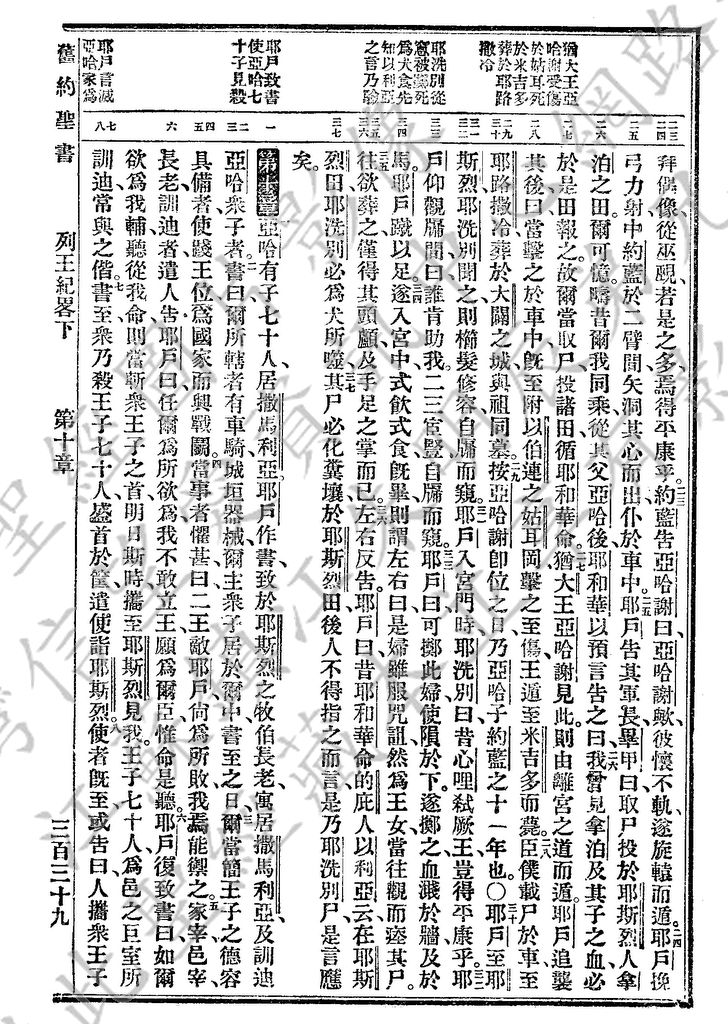 猶大王亞
哈謝受傷
於姑耳死
於米吉多
葬於耶路
撒冷
耶洗別從
窻被擲死
為犬食先
知以利亞
之言乃驗
耶戶致書
使亞哈七
十子見殺
耶戶言滅
亞哈家為
拜偶像從巫覡若是之多焉得平康乎約藍告亞哈謝曰亞哈謝歟彼懷不軌遂旋轅而遁耶戶挽
弓力射中約藍於二臂間矢洞其心而出仆於車中耶戶告其軍長畢甲曰取尸投於耶斯烈人拿
泊之田爾可憶疇昔爾我同乘從其父亞哈後耶和華以預言告之曰我曾見拿泊及其子之血必
於是田報之故爾當取尸投諸田循耶和華命猶大王亞哈謝見此則由離宮之道而遁耶戶追襲
其後曰當擊之於車中旣至附以伯連之姑耳岡擊之至傷王遁至米吉多而薨臣僕載尸於車至
耶路撒冷葬於大闢之城與祖同墓按亞哈謝卽位之日乃亞哈子約藍之十一年也〇耶戶至耶
斯烈耶洗別聞之則櫛髮修容自牖而窺耶戶入宮門時耶洗別曰昔心哩弒厥王豈得平康乎耶
戶仰觀牖間曰誰肯助我二三宦豎自牖而窺耶戶曰可擲此婦使隕於下遂擲之血濺於牆及於
馬耶戶蹴以足遂入宮中式飲式食旣畢則謂左右曰是婦雖服咒詛然為王女當往觀而瘞其尸
往欲葬之僅得其頭顱及手足之掌而已左右反告耶戶曰昔耶和華命的庇人以利亞云在耶斯
烈田耶洗別必為犬所噬其尸必化糞壤於耶斯烈田後人不得指之而言是乃耶洗別尸是言應
矣
第十章亞哈有子七十人居撒馬利亞耶戶作書致於耶斯烈之牧伯長老寓居撒馬利亞及訓迪
亞哈衆子者書曰爾所轄者有車騎城垣器械爾主衆子居於爾中書至之日爾當簡王子之德容
具備者使踐王位為國家而興戰鬭當事者懼甚曰二王敵耶戶尙為所敗我焉能禦之家宰邑宰
長老訓迪者遣人告耶戶曰任爾為所欲為我不敢立王願為爾臣惟命是聽耶戶復致書曰如爾
欲為我輔聽從我命則當斬衆王子之首明日斯時攜至耶斯烈見我王子七十人為邑之巨室所
訓迪常與之偕書至衆乃殺王子七十人盛首於筐遣使詣耶斯烈使者旣至或告曰人攜衆王子
舊約聖書 列王紀畧下 第十章 三百三十九